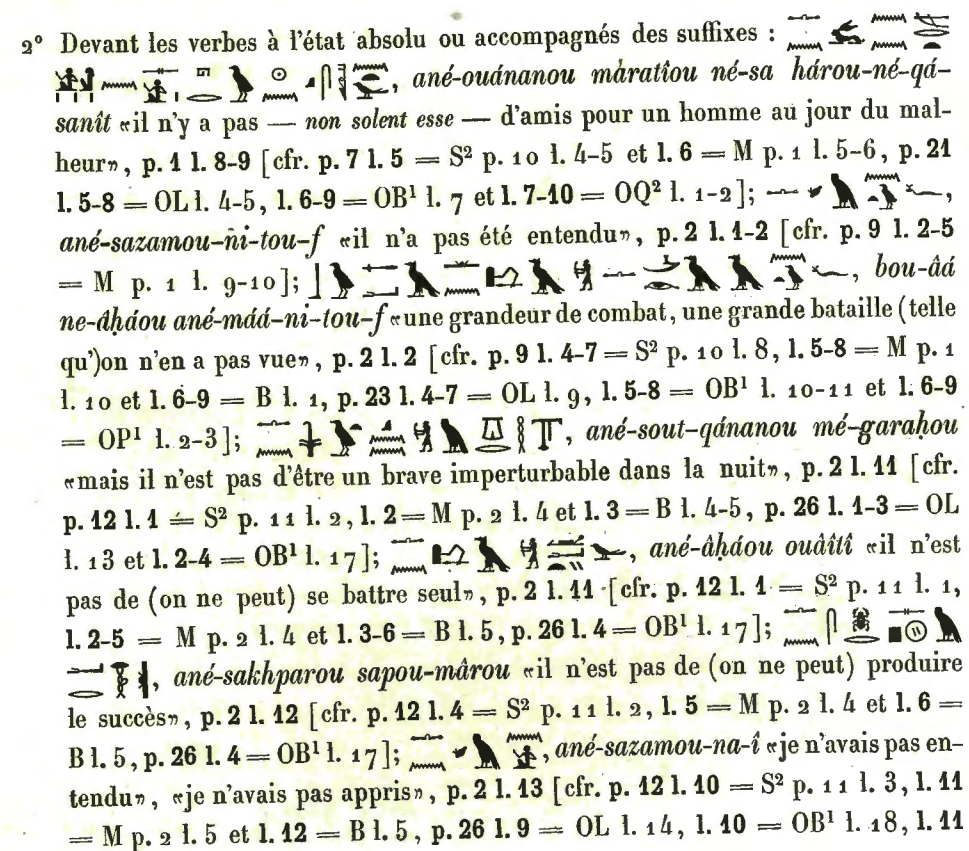 2° Devant les verbes à l'état absolu ou accompagnés des suffixes :
, ané-ouánanou máratîou né-sa hárou-né-qá-
sanît «il n'y a pas — non solent esse — d'amis pour un homme au jour du mal-
heur», p. 1 l. 8-9 [cfr. p. 7 l. 5 = S² p. 10 l. 4-5 et l. 6 = M p. 1 l. 5-6, p. 21
l. 5-8 = OL l. 4-5, l. 6-9 = OB¹ l. 7 et l. 7-10 = OQ² l. 1-2];
ané-sazamou-ni-tou-f «il n'a pas été entendu», p. 2 l. 1-2 [cfr. p. 9 l. 2-5
= M p. 1 l. 9-10]; , bou-âá
ne-âḥáou ané-máá-ni-tou-f «une grandeur de combat, une grande bataille (telle
qu')on n'en a pas vue», p. 2 l. 2 [cfr. p. 9 l. 4-7 = S² p. 10 l. 8, l. 5-8 = M p. 1
l. 10 et l. 6-9 = B l. 1, p. 23 l. 4-7 = OL l. 9, l. 5-8 = OB¹ l. 10-11 et l. 6-9
= OP¹ l. 2-3]; , ané-sout-qánanou mé-garaḥou
«mais il n'est pas d'être un brave imperturbable dans la nuit», p. 2 l. 11 [cfr.
p. 12 l. 1 = S² p. 11 l. 2, l. 2 = M p. 2 l. 4 et l. 3 = B l. 4-5, p. 26 l. 1-3 = OL
l. 13 et l. 2-4 = OB¹ l. 17]; , ané-âḥáou ouâîtî «il n'est
pas de (on ne peut) se battre seul», p. 2 l. 11 [cfr. p. 12 l. 1 = S² p. 11 l. 1,
l. 2-5 = M p. 2 l. 4 et l. 3-6 = B l. 5, p. 26 l. 4 = OB¹ l. 17];
, ané-sakhparou sapou-mârou «il n'est pas de (on ne peut) produire
le succès», p. 2 l. 12 [cfr. p. 12 l. 4 = S² p. 11 l. 2, l. 5 = M p. 2 l. 4 et l. 6 =
B l. 5, p. 26 l. 4 = OB¹ l. 17]; , ané-sazamou-na-î «je n'avais pas en-
tendu», «je n'avais pas appris», p. 2 l. 13 [cfr. p. 12 l. 10 = S² p. 11 l. 3, l. 11
= M p. 2 l. 5 et l. 12 = B l. 5, p. 26 l. 9 = OL l. 14, l. 10 = OB¹ l. 18, l. 11